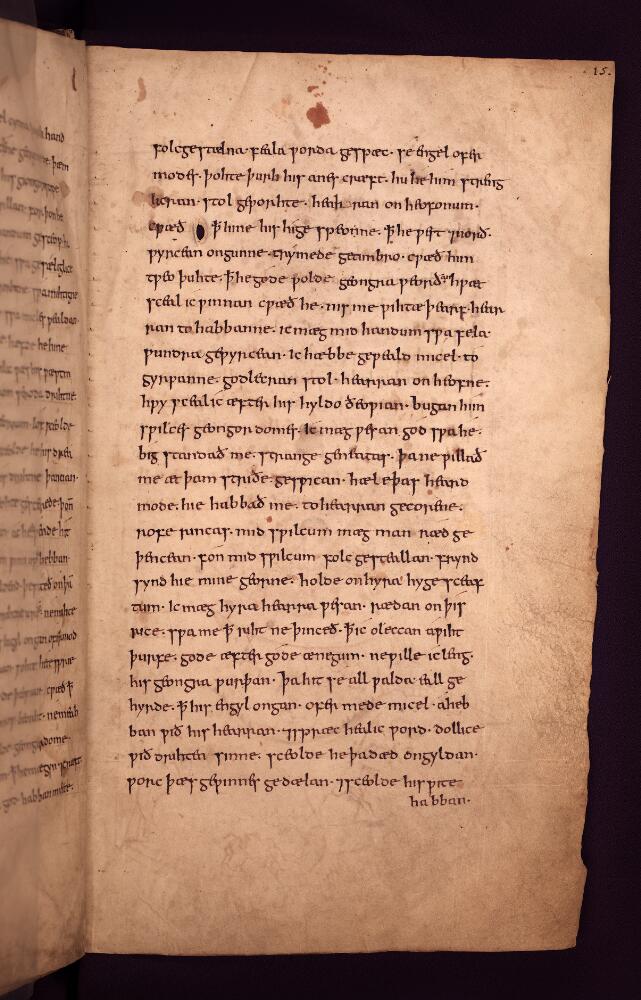 15.
folcgestælna· feala worda gespæc· se engel ofer
modes· þohte þurh his anes cræft· hu he him streng
licran· stol geworhte· heahran on heofonum·
cwæð ꝥ hine his hige speonne· ꝥ he west ⁊ norð·
wyrcean ongunne· trymede getimbro· cwæð him
tweo þuhte· ꝥ he gode wolde· geongra weorðan hwæt
sceal ic winnan cwæð he· nis me wihtæ þearf· hear
ran to habbanne· ic mæg mid handum swa fela·
wundra gewyrcean· ic hæbbe geweald micel· to
gyrwanne· godlecran stol· hearran on heofne·
hwy sceal ic æfter his hyldo ðeowian· bugan him
swilces geongordomes· ic mæg wesan god swa he·
big standað me· strange geneatas· þa ne willað
me æt þam striðe· geswican· hæleþas heard
mode· hie habbað me· to hearran gecorene·
rofe rincas· mid swilcum mæg man ræd ge
þencean· fon mid swilcum folc gesteallan· frynd
synd hie mine georne· holde on hyra hyge sceaf
tum· ic mæg hyra hearra wesan· rædan on þis
rice· swa me ꝥ riht ne þinceð· ꝥ ic oleccan awiht
þurfe· gode æfter gode ænegum· ne wille ic leng·
his geongra wurþan· þa hit se all walda eall ge
hyrde· ꝥ his engyl ongan· ofer mede micel· aheb
ban wið his hearran· ⁊ spræc healic word· dollice
wið drihten sinne· sceolde he þa dæd ongyldan·
worc þæs gewinnes gedælan· ⁊ sceolde his wite
habban·